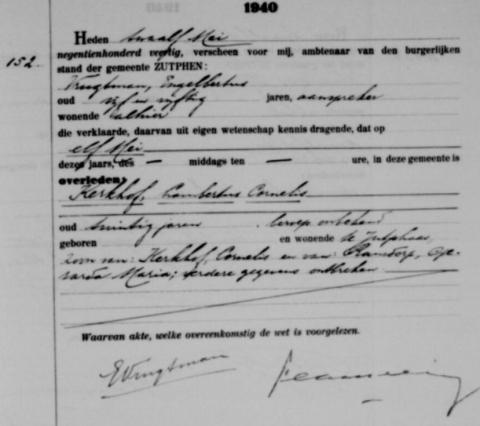 1940
Heden twaalf Mei
negentienhonderd veertig, verscheen voor mij, ambtenaar van den burgerlijken
152.
stand der gemeente ZUTPHEN:
Vrugtman, Engelbertus
oud vijf en vijftig jaren, aanspreker
wonende alhier
die verklaarde, daarvan uit eigen wetenschap kennis dragende, dat op
elf Mei
dezes jaars, des — middags ten — ure, in deze gemeente is
overleden:
Kerkhof, Lambertus Cornelis
oud twintig jaren beroep onbekend
geboren en wonende te Zutphaas,
zoon van: Kerkhof, Cornelis en van: Ramsdorp,
Maria; verdere gegevens ontbreken.
Waarvan akte, welke overeenkomstig de wet is voorgelezen.
EVrugtman